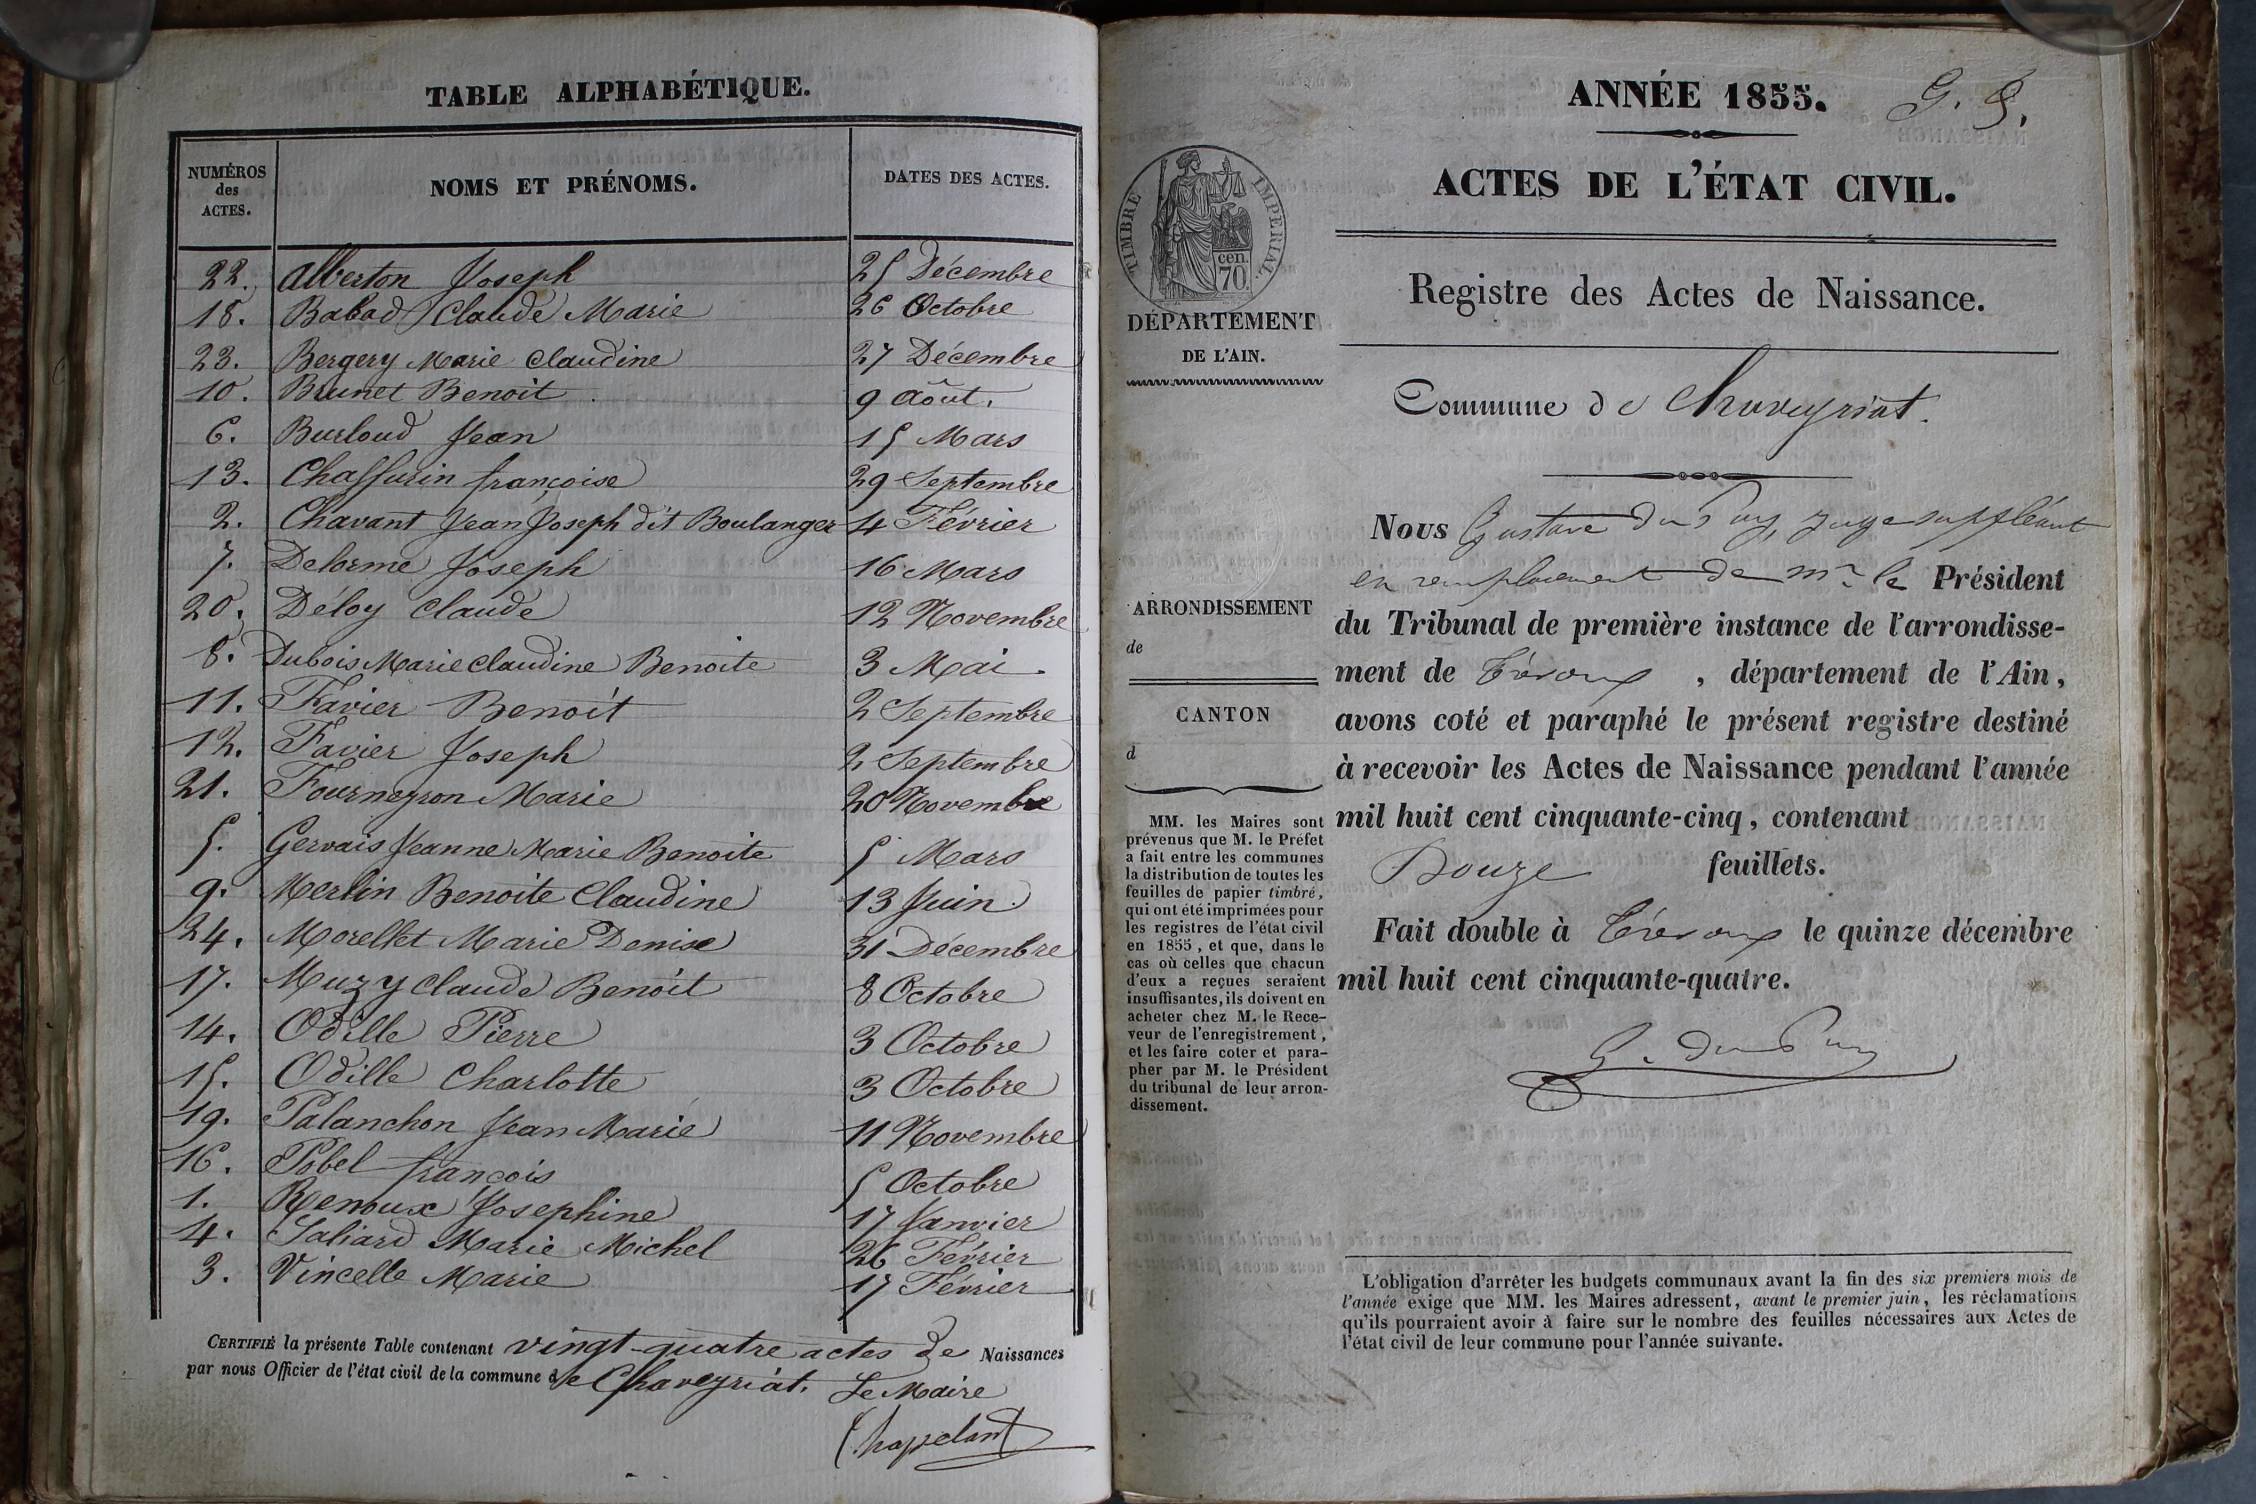 TABLE ALPHABÉTIQUE.
NUMÉROS des ACTES. NOMS ET PRÉNOMS. DATES DES ACTES.
22. Alberton Joseph 25 Décembre
18. Babad Claude Marie 26 Octobre
23. Bergery Marie Claudine 27 Décembre
10. Brunet Benoit 9 Aôut.
6. Burloud Jean 15 Mars
13. Chaffurin françoise 29 Septembre
2. Chavant Jean Joseph dit Boulanger 4 Février
7. Delorme Joseph 16 Mars
20. Déloy Claude 12 Novembre
8. Dubois Marie Claudine Benoite 3 Mai.
11. Favier Benoit 2 Septembre
12. Favier Joseph 2 Septembre
21. Fourneyron Marie 20 Novembre
5. Gervais Jeanne Marie Benoite 5 Mars
9. Merlin Benoite Claudine 13 Juin.
24. Morellet Marie Denise 31 Décembre
17. Muzy Claude Benoit 8 Octobre
14. Odille Pierre 3 Octobre
15. Odille Charlotte 3 Octobre
19. Palanchon Jean Marie 11 Novembre
16. Pobel françois 5 Octobre
1. Renoux Josephine 17 Janvier
4. Saliard Marie Michel 26 Février
3. Vincelle Marie 17 Février
CERTIFIÉ la présente Table contenant vingt-quatre actes de Naissances
par nous Officier de l'état civil de la commune de Chaveyriat. Le Maire
Chapelant
ANNÉE 1855. G. P.
ACTES DE L'ÉTAT CIVIL.
TIMBRE IMPÉRIAL.
cen.
70.
Registre des Actes de Naissance.
DÉPARTEMENT
DE L'AIN.
Commune de Chaveyriat.
Nous Gustave du Puy, juge suppléant
en remplacement de Mr le Président
du Tribunal de première instance de l'arrondisse-
ment de Trévoux, département de l'Ain,
avons coté et paraphé le présent registre destiné
à recevoir les Actes de Naissance pendant l'année
mil huit cent cinquante-cinq, contenant
Douze feuillets.
Fait double à Trévoux le quinze décembre
mil huit cent cinquante-quatre.
G. du Puy
ARRONDISSEMENT
de
CANTON
d
MM. les Maires sont
prévenus que M. le Préfet
a fait entre les communes
la distribution de toutes les
feuilles de papier timbré,
qui ont été imprimées pour
les registres de l'état civil
en 1855, et que, dans le
cas où celles que chacun
d'eux a reçues seraient
insuffisantes, ils doivent en
acheter chez M. le Rece-
veur de l'enregistrement,
et les faire coter et para-
pher par M. le Président
du tribunal de leur arron-
dissement.
L'obligation d'arrêter les budgets communaux avant la fin des six premiers mois de
l'année exige que MM. les Maires adressent, avant le premier juin, les réclamations
qu'ils pourraient avoir à faire sur le nombre des feuilles nécessaires aux Actes de
l'état civil de leur commune pour l'année suivante.